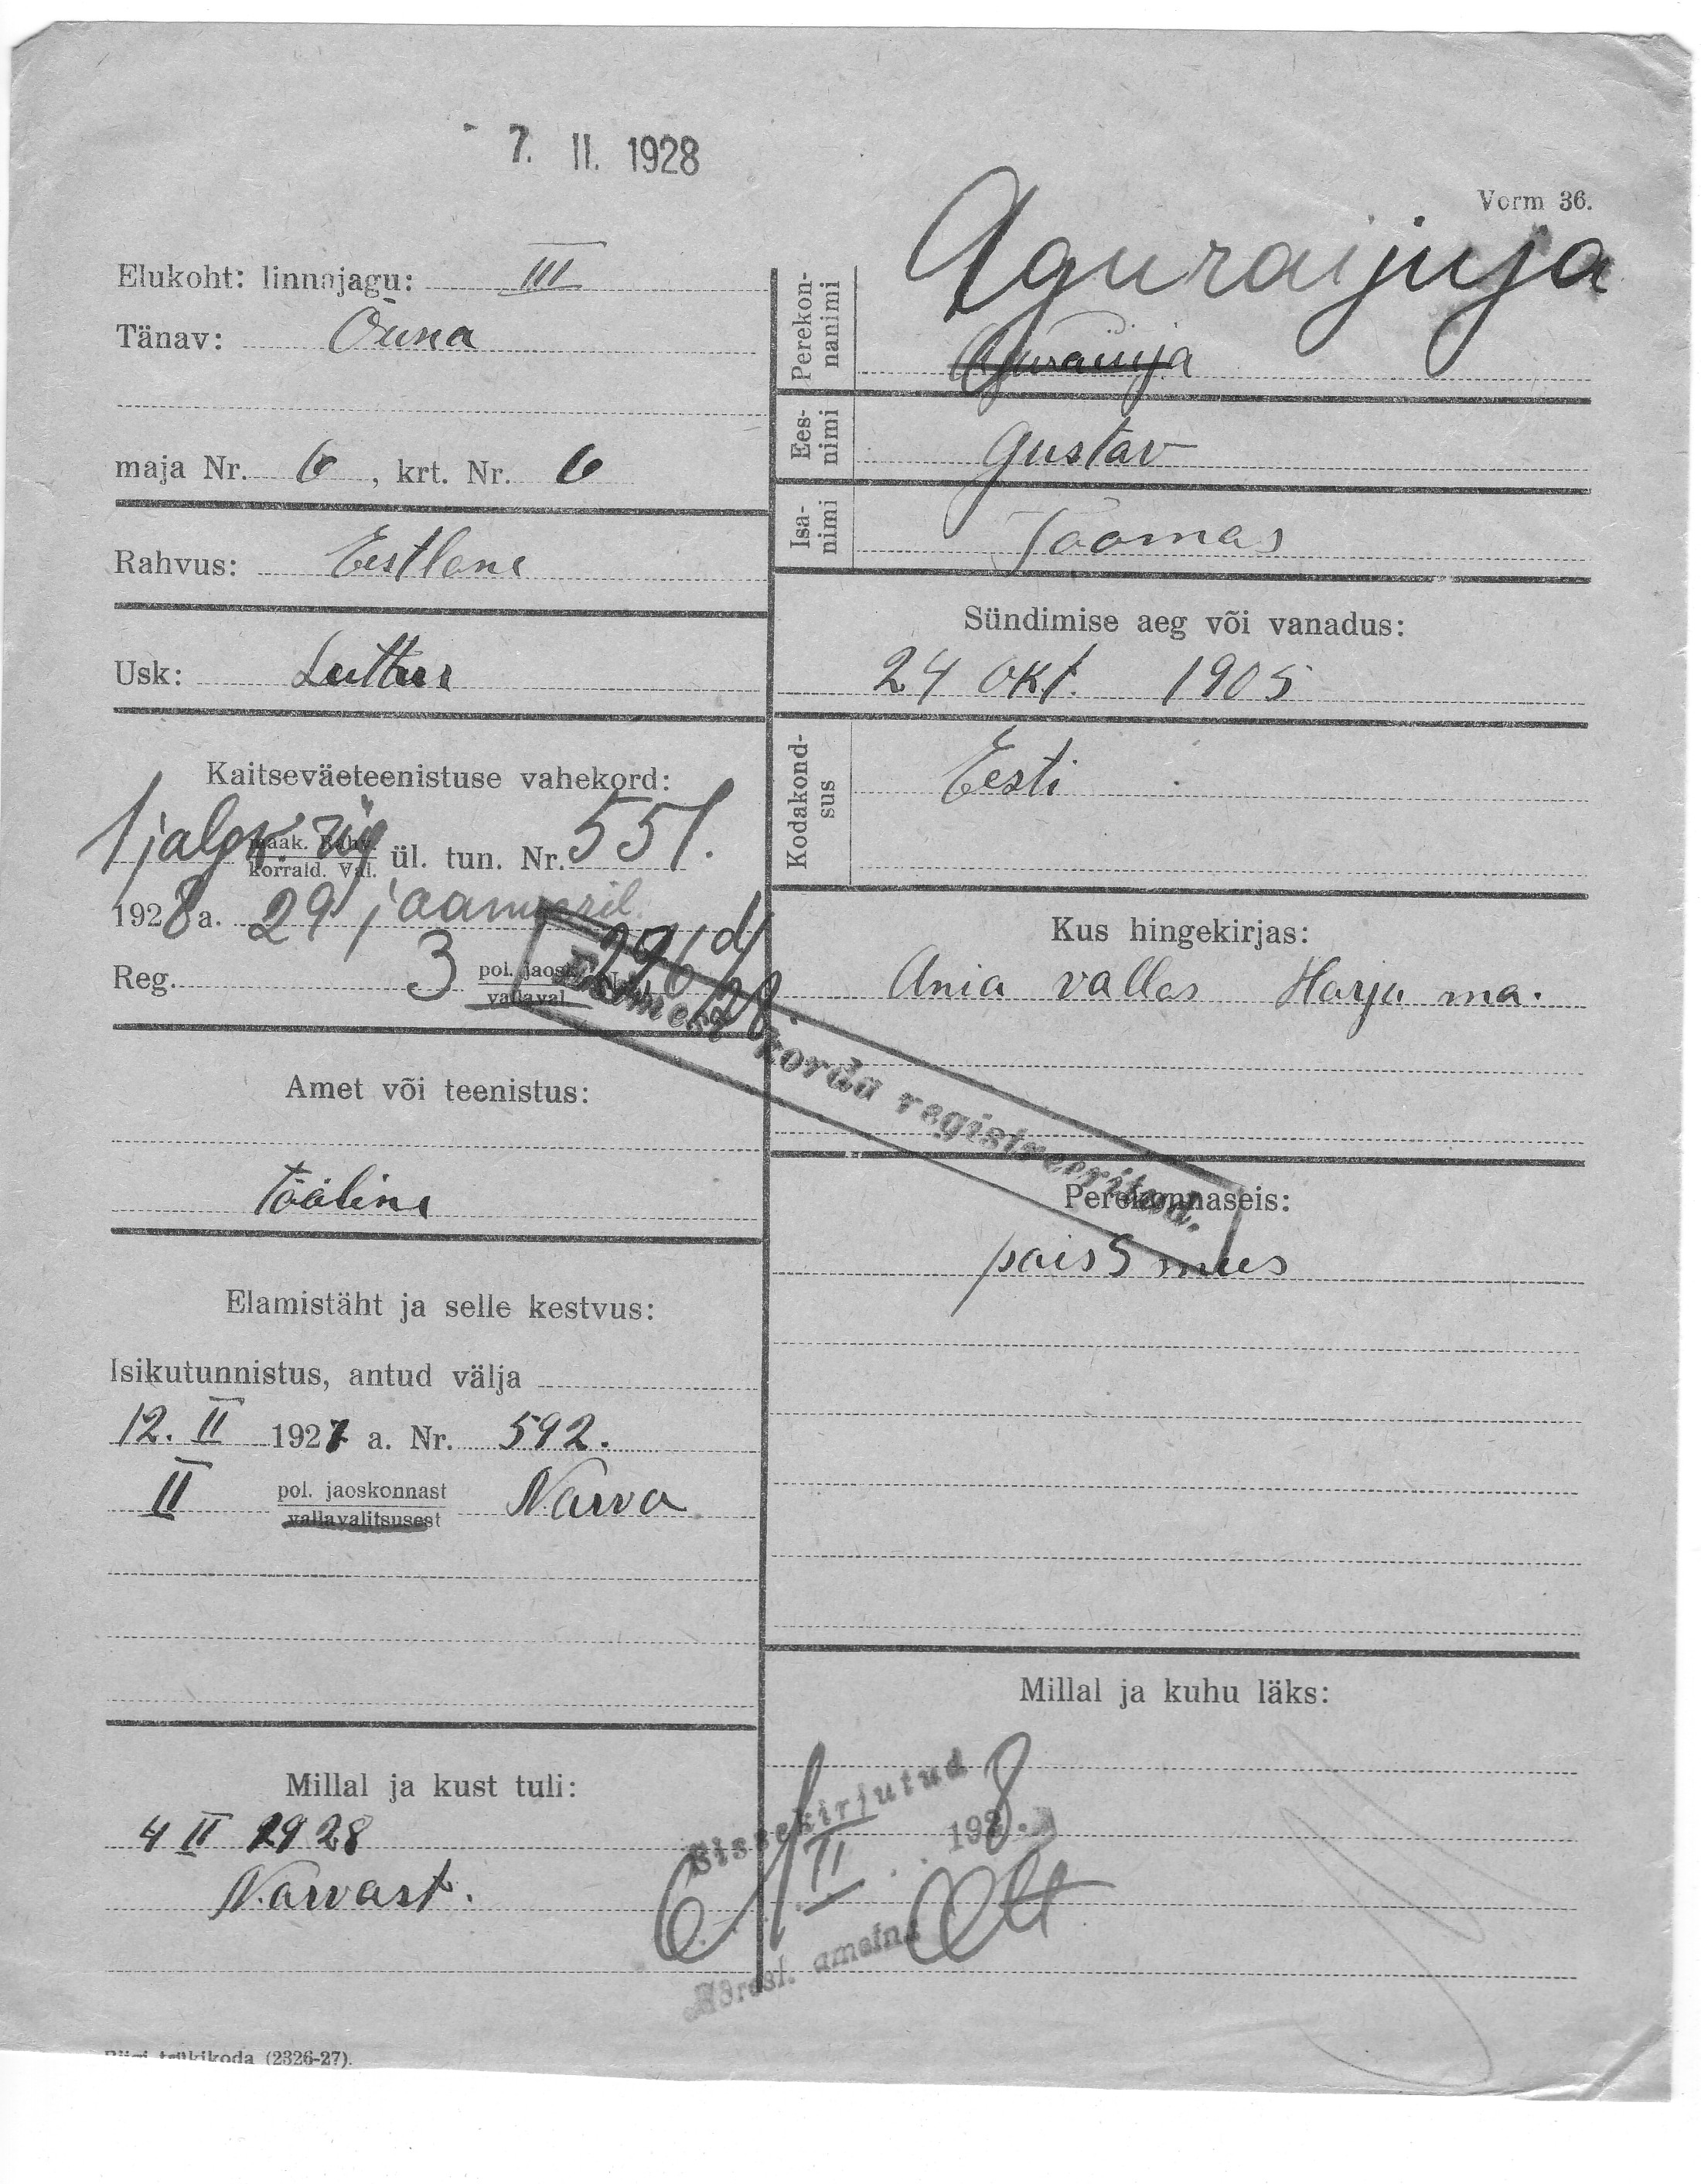 7. II. 1928
Vorm 36.
Elukoht: linnajagu: III
Tänav: Õuna
maja Nr. 6, krt. Nr. 6
Rahvus: Eestlane
Usk: Luther
Kaitseväeteenistuse vahekord:
1 jalgv. rüg
korrald. Val.
ül. tun. Nr. 551.
1928 a. 29 jaanuaril
Reg. 3 pol. jaosk.
vallaval.
Esimest korda registreeritud.
Amet või teenistus:
Tööline
Elamistäht ja selle kestvus:
Isikutunnistus, antud välja
12. II 1927 a. Nr. 592.
II pol. jaoskonnast Narva
vallavalitsusest
Millal ja kust tuli:
4 II 1928
Narvast.
Riigi trükikoda (2326-27).
Perekon-
nanimi
Aguraijuja
Ees-
nimi
Gustav
Isa-
nimi
Toomas
Sündimise aeg või vanadus:
24 okt. 1905
Kodakond-
sus
Eesti
Kus hingekirjas:
Ania vallas Harju ma.
Perekonnaseis:
poissmees
Millal ja kuhu läks:
Sissekirjutud
6/II 1928.
Adressl. ametn.